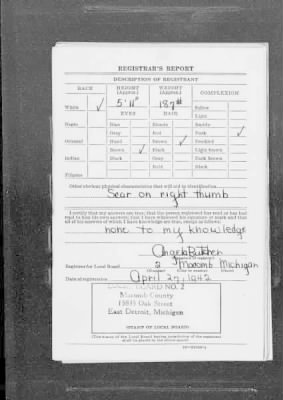 REGISTRAR'S REPORT
DESCRIPTION OF REGISTRANT
RACE HEIGHT (Approx.) WEIGHT (Approx.) COMPLEXION
White ✓ 5' 11" 187# Sallow
EYES HAIR Light
Negro Blue Blonde Ruddy
Gray Red Dark ✓
Oriental Hazel Brown ✓ Freckled
Brown ✓ Black Light brown
Indian Black Gray Dark brown
Bald Black
Filipino
Other obvious physical characteristics that will aid in identification
Scar on right thumb
I certify that my answers are true; that the person registered has read or has had
read to him his own answers; that I have witnessed his signature or mark and that
all of his answers of which I have knowledge are true, except as follows:
none to my knowledge
Registrar for Local Board 2 Macomb Michigan
Date of registration April 27, 1942
LOCAL BOARD NO. 2
Macomb County
15835 Oak Street
East Detroit, Michigan
(STAMP OF LOCAL BOARD)
(The stamp of the Local Board having jurisdiction of the registrant
shall be placed in the above space)